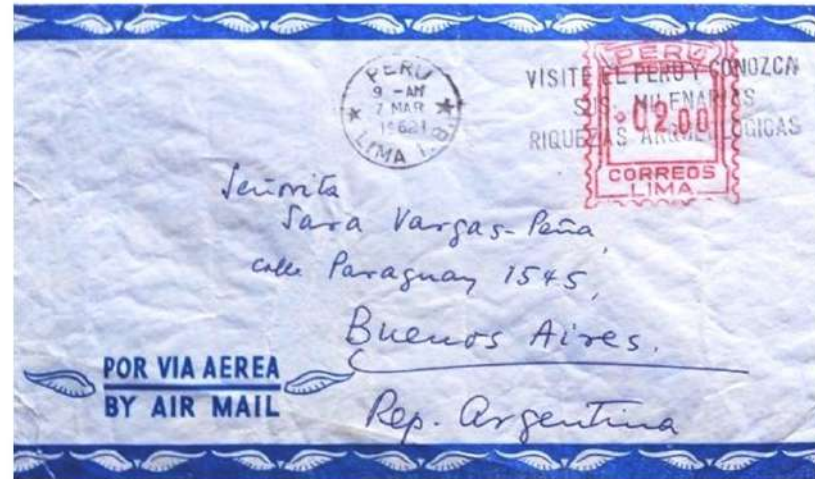 PERU
9 - AM
7 MAR
LIMA
VISITE EL PERU Y CONOZCA
SUS MILENARIAS
RIQUEZAS ARQUEOLOGICAS
PERU
02.00
CORREOS
LIMA
Señorita
Sara Vargas-Peña,
calle Paraguay 1545,
Buenos Aires.
Rep. Argentina
POR VIA AEREA
BY AIR MAIL